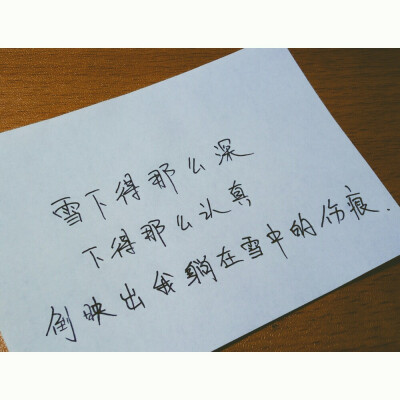 雪下得那么深
下得那么认真
倒映出我躺在雪中的伤痕.